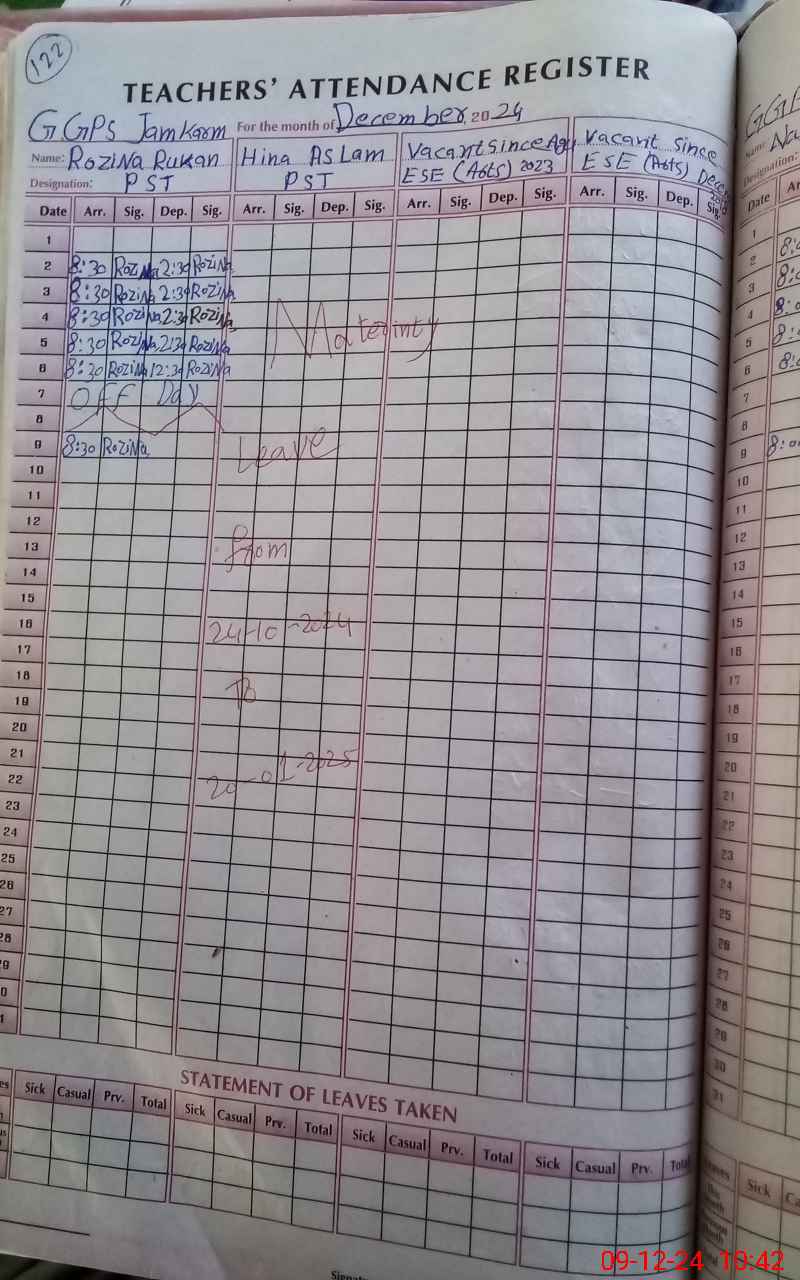 122
TEACHERS' ATTENDANCE REGISTER
GGPS Jamkarm For the month of December, 2024
Name: RoziNa Rukan Hina Aslam Vacant since Agu Vacant since
Designation: PST PST ESE (Arts) 2023 ESE (Arts) Dece
Date Arr. Sig. Dep. Sig. Arr. Sig. Dep. Sig. Arr. Sig. Dep. Sig. Arr. Sig. Dep. Sig.
1
2 8:30 RoziNa 2:30 RoziNa
3 8:30 RoziNa 2:30 RoziNa
4 8:30 RoziNa 2:30 RoziNa
Materinty
5 8:30 RoziNa 2:30 RoziNa
6 8:30 RoziNa 12:30 RoziNa
7 OFF Day
8
9 8:30 RoziNa
Leave
10
11
12
13 from
14
15
16 24-10-2024
17
18
19 To
20
21
22 20-01-2025
23
24
25
26
27
28
29
30
31
STATEMENT OF LEAVES TAKEN
Sick Casual Prv. Total Sick Casual Prv. Total Sick Casual Prv. Total Sick Casual Prv. Total
GGP
Name: Na
Designation:
Date Ar
1
2 8:0
3 8:0
4 8:0
5 8:0
6 8:0
7
8
9 8:00
10
11
12
13
14
15
16
17
18
19
20
21
22
23
24
25
26
27
28
29
30
31
Sick Ca
09-12-24 10:42